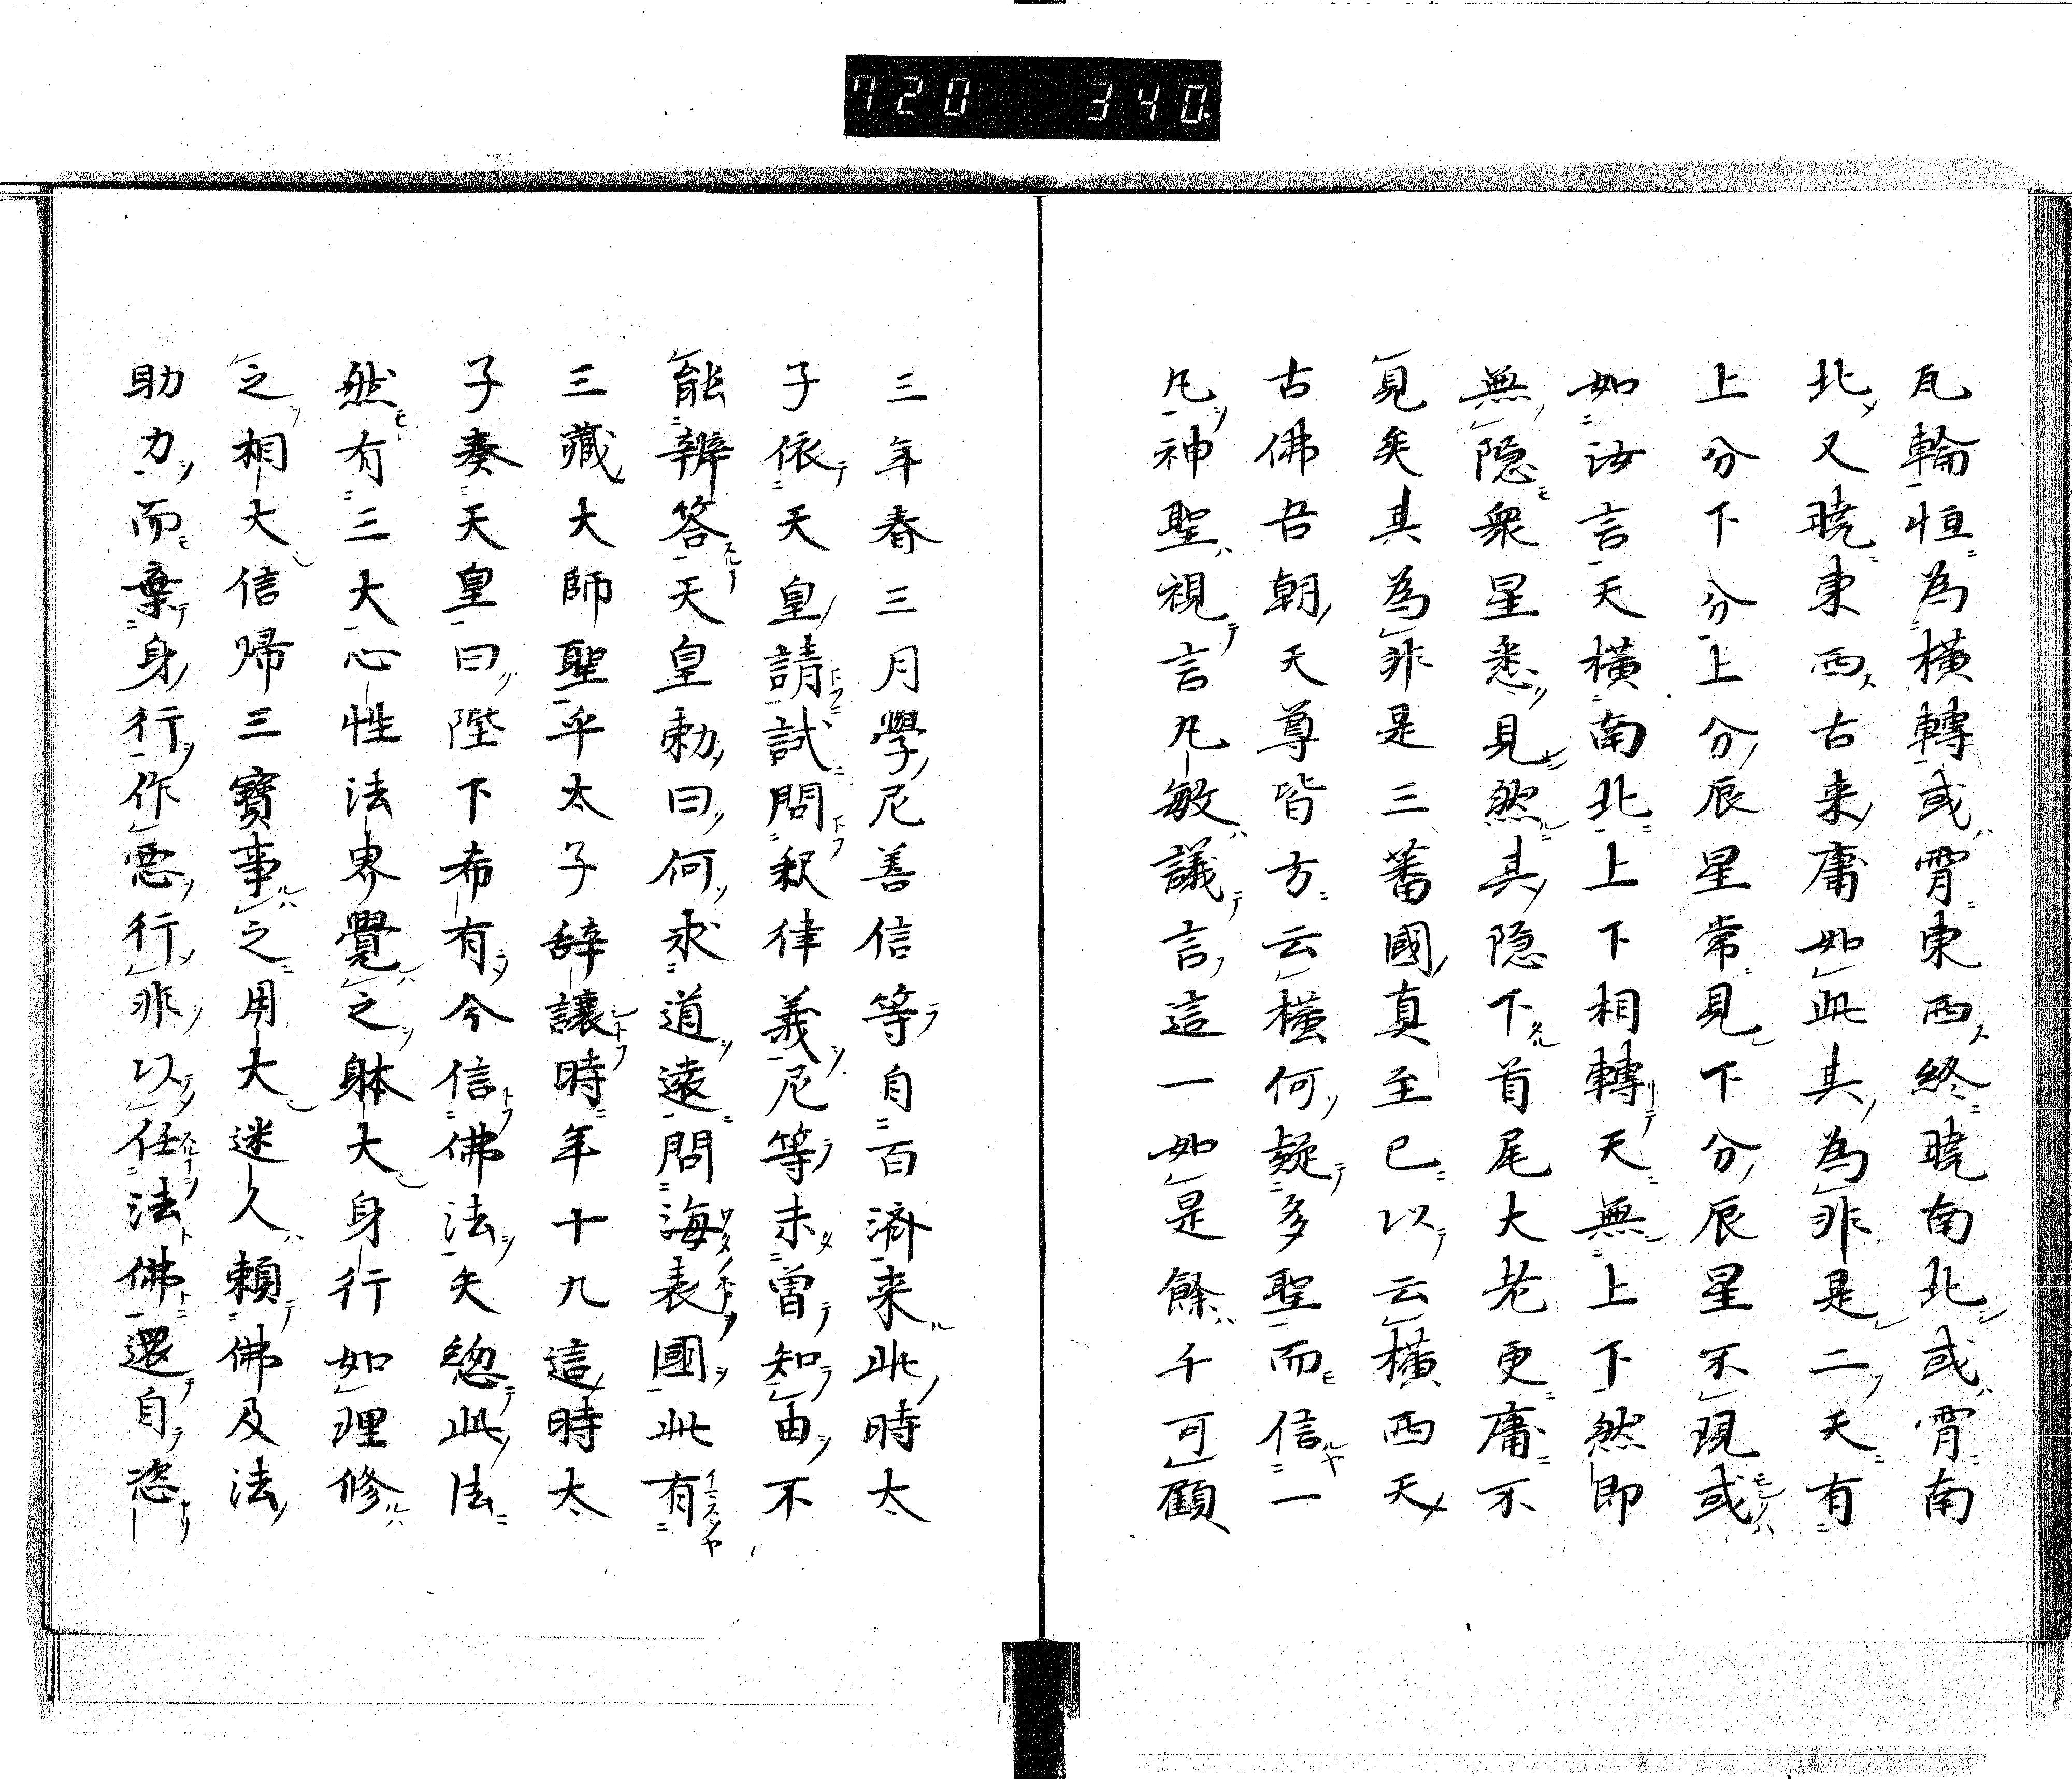 720 340.
瓦輪恒為横轉或霄東西終曉南北或霄南
北又曉東西古来庸如此其為非是二天有
上分下分上分辰星常見下分辰星不現或
如汝言天横南北上下相轉天無上下然即
無隠衆星悉見然其隠下首尾大老更庸不
見矣其為非是三蕃國真至已以云横西天
古佛吾朝天尊皆方云横何疑多聖而信一
凡神聖視言凡敏議言這一如是餘千可顧
三年春三月學尼善信等自百済来此時太
子依天皇請試問釈律義尼等未曽知由不
能辨答天皇勅曰何求道遠問海表國此有
三藏大師聖乎太子辞讓時年十九這時太
子奏天皇曰陛下希有今信佛法矣惣此法
然有三大心性法界覺之躰大身行如理修
之相大信帰三寶事之用大迷人頼佛及法
助力而棄身行作悪行非以任法佛還自恣